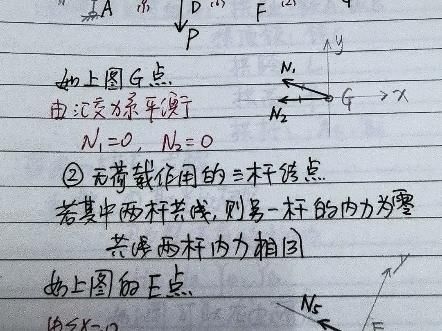 A (1) D F (2)
P
y
如上图G点
N₁
G
x
由汇交力系平衡
N₂
N₁=0, N₂=0
② 无荷载作用的三杆结点
若其中两杆共线,则另一杆的内力为零
共线两杆内力相同
如上图的E点
y
N₅
由Σx=0
E